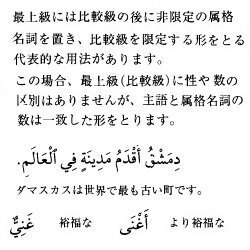 最上級には比較級の後に非限定の属格
名詞を置き、比較級を限定する形をとる
代表的な用法があります。
この場合、最上級(比較級)に性や数の
区別はありませんが、主語と属格名詞の
数は一致した形をとります。
دِمَشْقُ أَقْدَمُ مَدِينَةٍ فِي ٱلْعَالَمِ.
ダマスカスは世界で最も古い町です。
غَنِيٌّ 裕福な أَغْنَى より裕福な